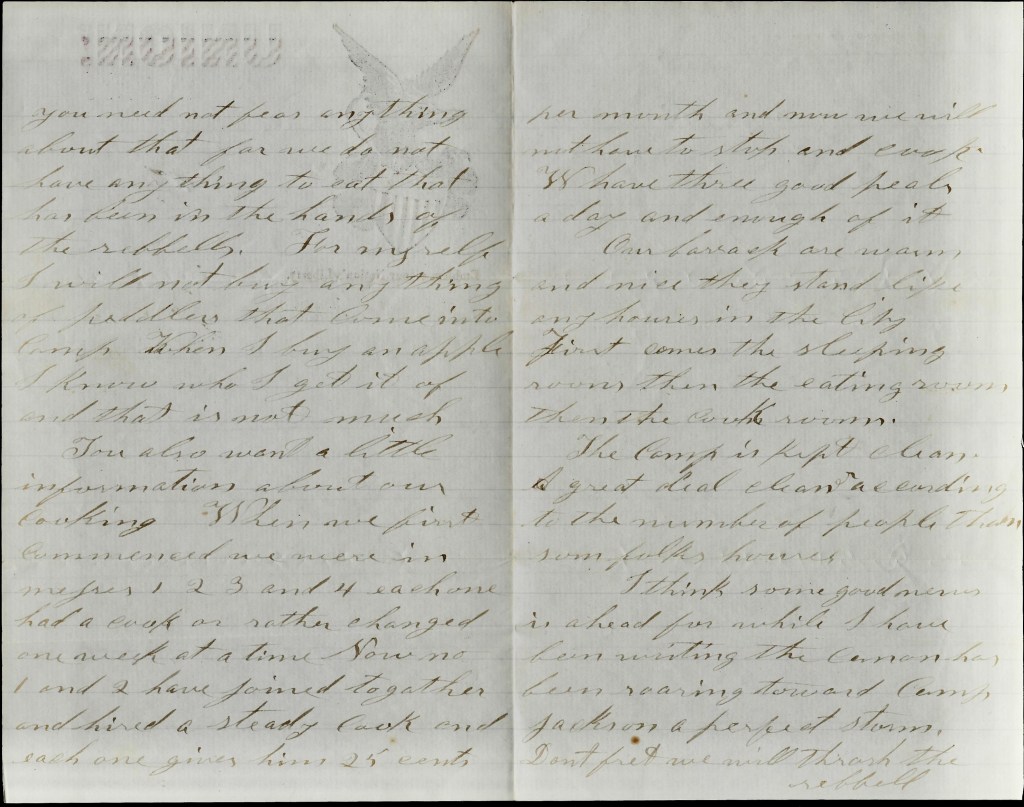 you need not fear anything
about that for we do not
have any thing to eat that
has been in the hands of
the rebbells. For myself
I will not buy any thing
of peddlers that come into
Camp When I buy an apple
I know who I get it of
and that is not much
You also want a little
information about our
Cooking When we first
commenced we were in
messes 1 2 3 and 4 each one
had a cook or rather changed
one week at a time Now no
1 and 2 have joined togather
and hired a steady Cook and
each one gives him 25 cents
per month and now we will
not have to stop and cook.
W have three good meals
a day and enough of it
Our barrack are warm
and nice they stand like
any houses in the City
First comes the sleeping
room then the eating room
then the cook room.
The Camp is kept clean.
A great deal cleanr according
to the number of people than
som folks houses
I think some good news
is ahead for while I have
been writing the Canon has
been roaring toward Camp
Jackson a perfect storm.
Dont fret we will thrash the
rebbell